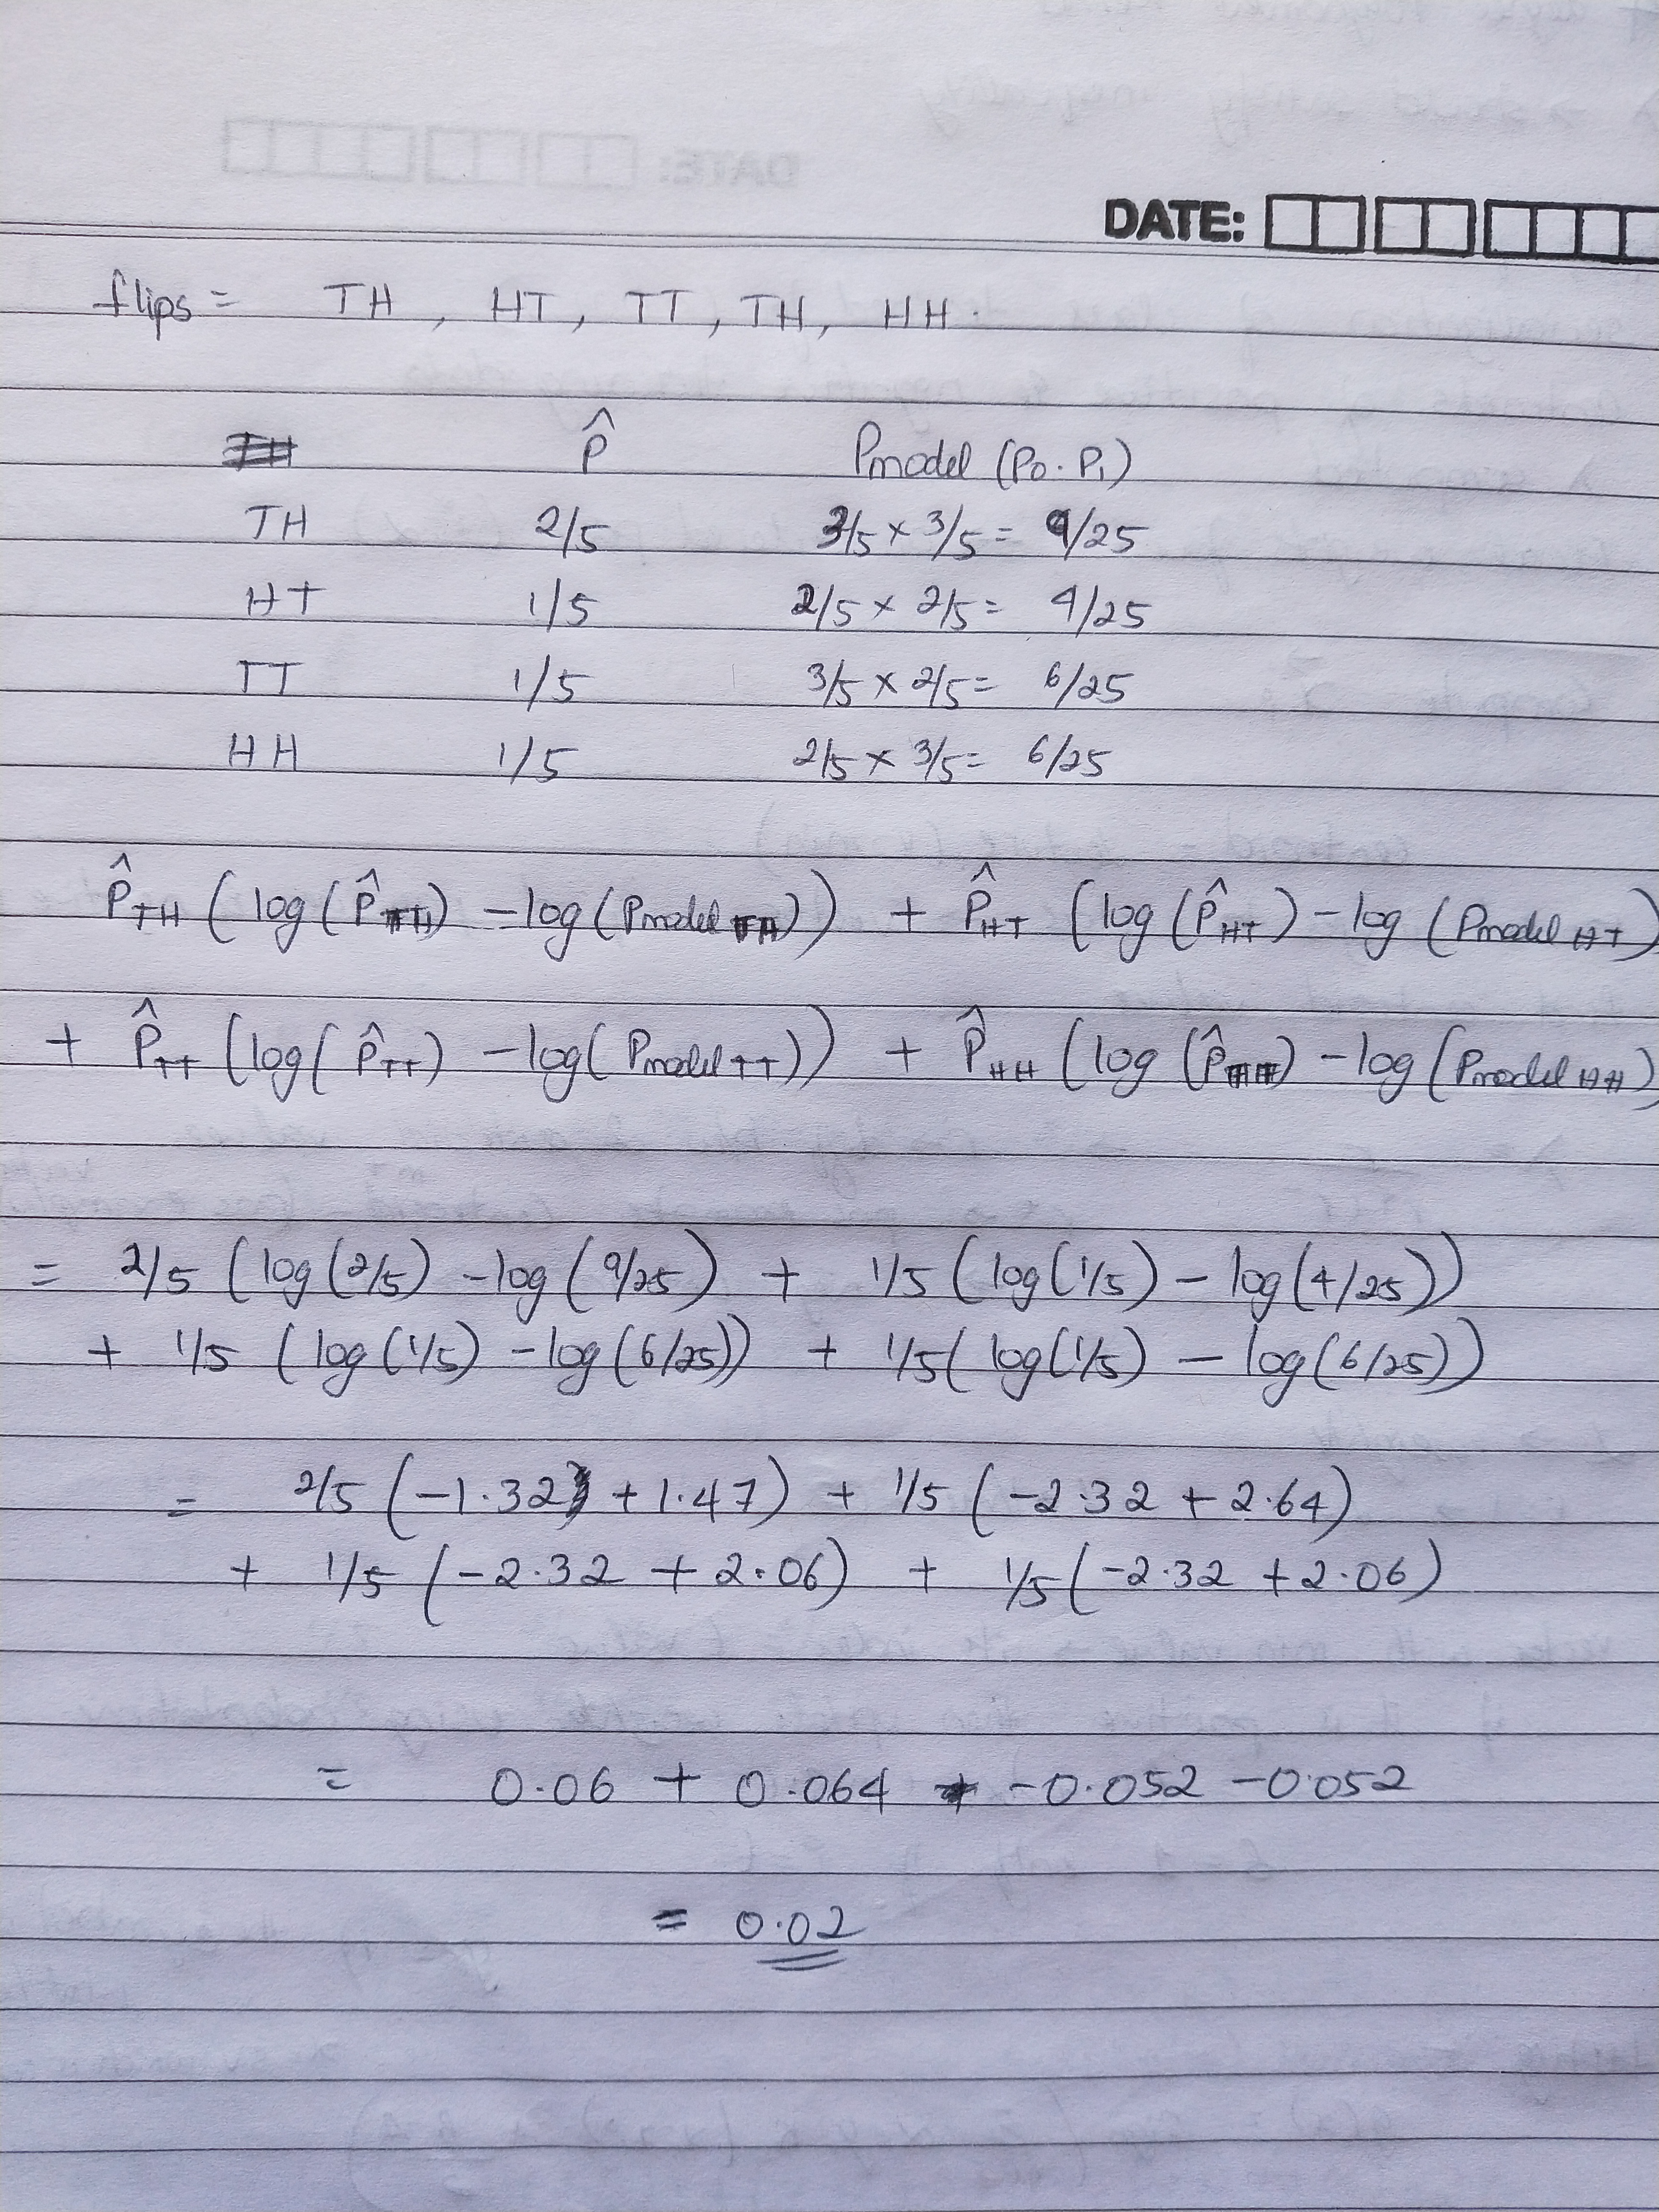 DATE:
flips = TH , HT , TT , TH , HH .
P̂ Pmodel (P₀ . P₁)
TH 2/5 3/5 × 3/5 = 9/25
HT 1/5 2/5 × 2/5 = 4/25
TT 1/5 3/5 × 2/5 = 6/25
HH 1/5 2/5 × 3/5 = 6/25
P̂TH ( log ( P̂TH) - log (Pmodel TH)) + P̂HT ( log ( P̂HT) - log ( Pmodel HT)
+ P̂TT ( log ( P̂TT) - log ( Pmodel TT)) + P̂HH ( log ( P̂HH) - log ( Pmodel HH)
= 2/5 ( log (2/5) - log ( 9/25) + 1/5 ( log (1/5) - log (4/25))
+ 1/5 ( log (1/5) - log (6/25)) + 1/5 ( log (1/5) - log (6/25))
= 2/5 ( -1.32 + 1.47) + 1/5 ( -2.32 + 2.64)
+ 1/5 ( -2.32 + 2.06) + 1/5 ( -2.32 + 2.06)
= 0.06 + 0.064 - 0.052 - 0.052
= 0.02